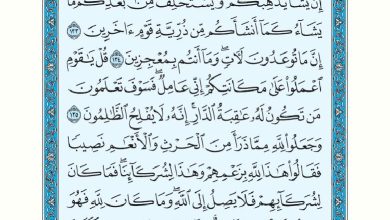 إِن يَشَأْ يُذْهِبْكُمْ وَيَسْتَخْلِفْ مِنۢ بَعْدِكُم مَّا
يَشَآءُ كَمَآ أَنشَأَكُم مِّن ذُرِّيَّةِ قَوْمٍ ءَاخَرِينَ ١٣٣
إِنَّ مَا تُوعَدُونَ لَءَاتٍ ۖ وَمَآ أَنتُم بِمُعْجِزِينَ ١٣٤ قُلْ يَٰقَوْمِ
ٱعْمَلُوا۟ عَلَىٰ مَكَانَتِكُمْ إِنِّى عَامِلٌ ۖ فَسَوْفَ تَعْلَمُونَ
مَن تَكُونُ لَهُۥ عَٰقِبَةُ ٱلدَّارِ ۗ إِنَّهُۥ لَا يُفْلِحُ ٱلظَّٰلِمُونَ ١٣٥
وَجَعَلُوا۟ لِلَّهِ مِمَّا ذَرَأَ مِنَ ٱلْحَرْثِ وَٱلْأَنْعَٰمِ نَصِيبًا
فَقَالُوا۟ هَٰذَا لِلَّهِ بِزَعْمِهِمْ وَهَٰذَا لِشُرَكَآئِنَا ۖ فَمَا كَانَ
لِشُرَكَآئِهِمْ فَلَا يَصِلُ إِلَى ٱللَّهِ ۖ وَمَا كَانَ لِلَّهِ فَهُوَ